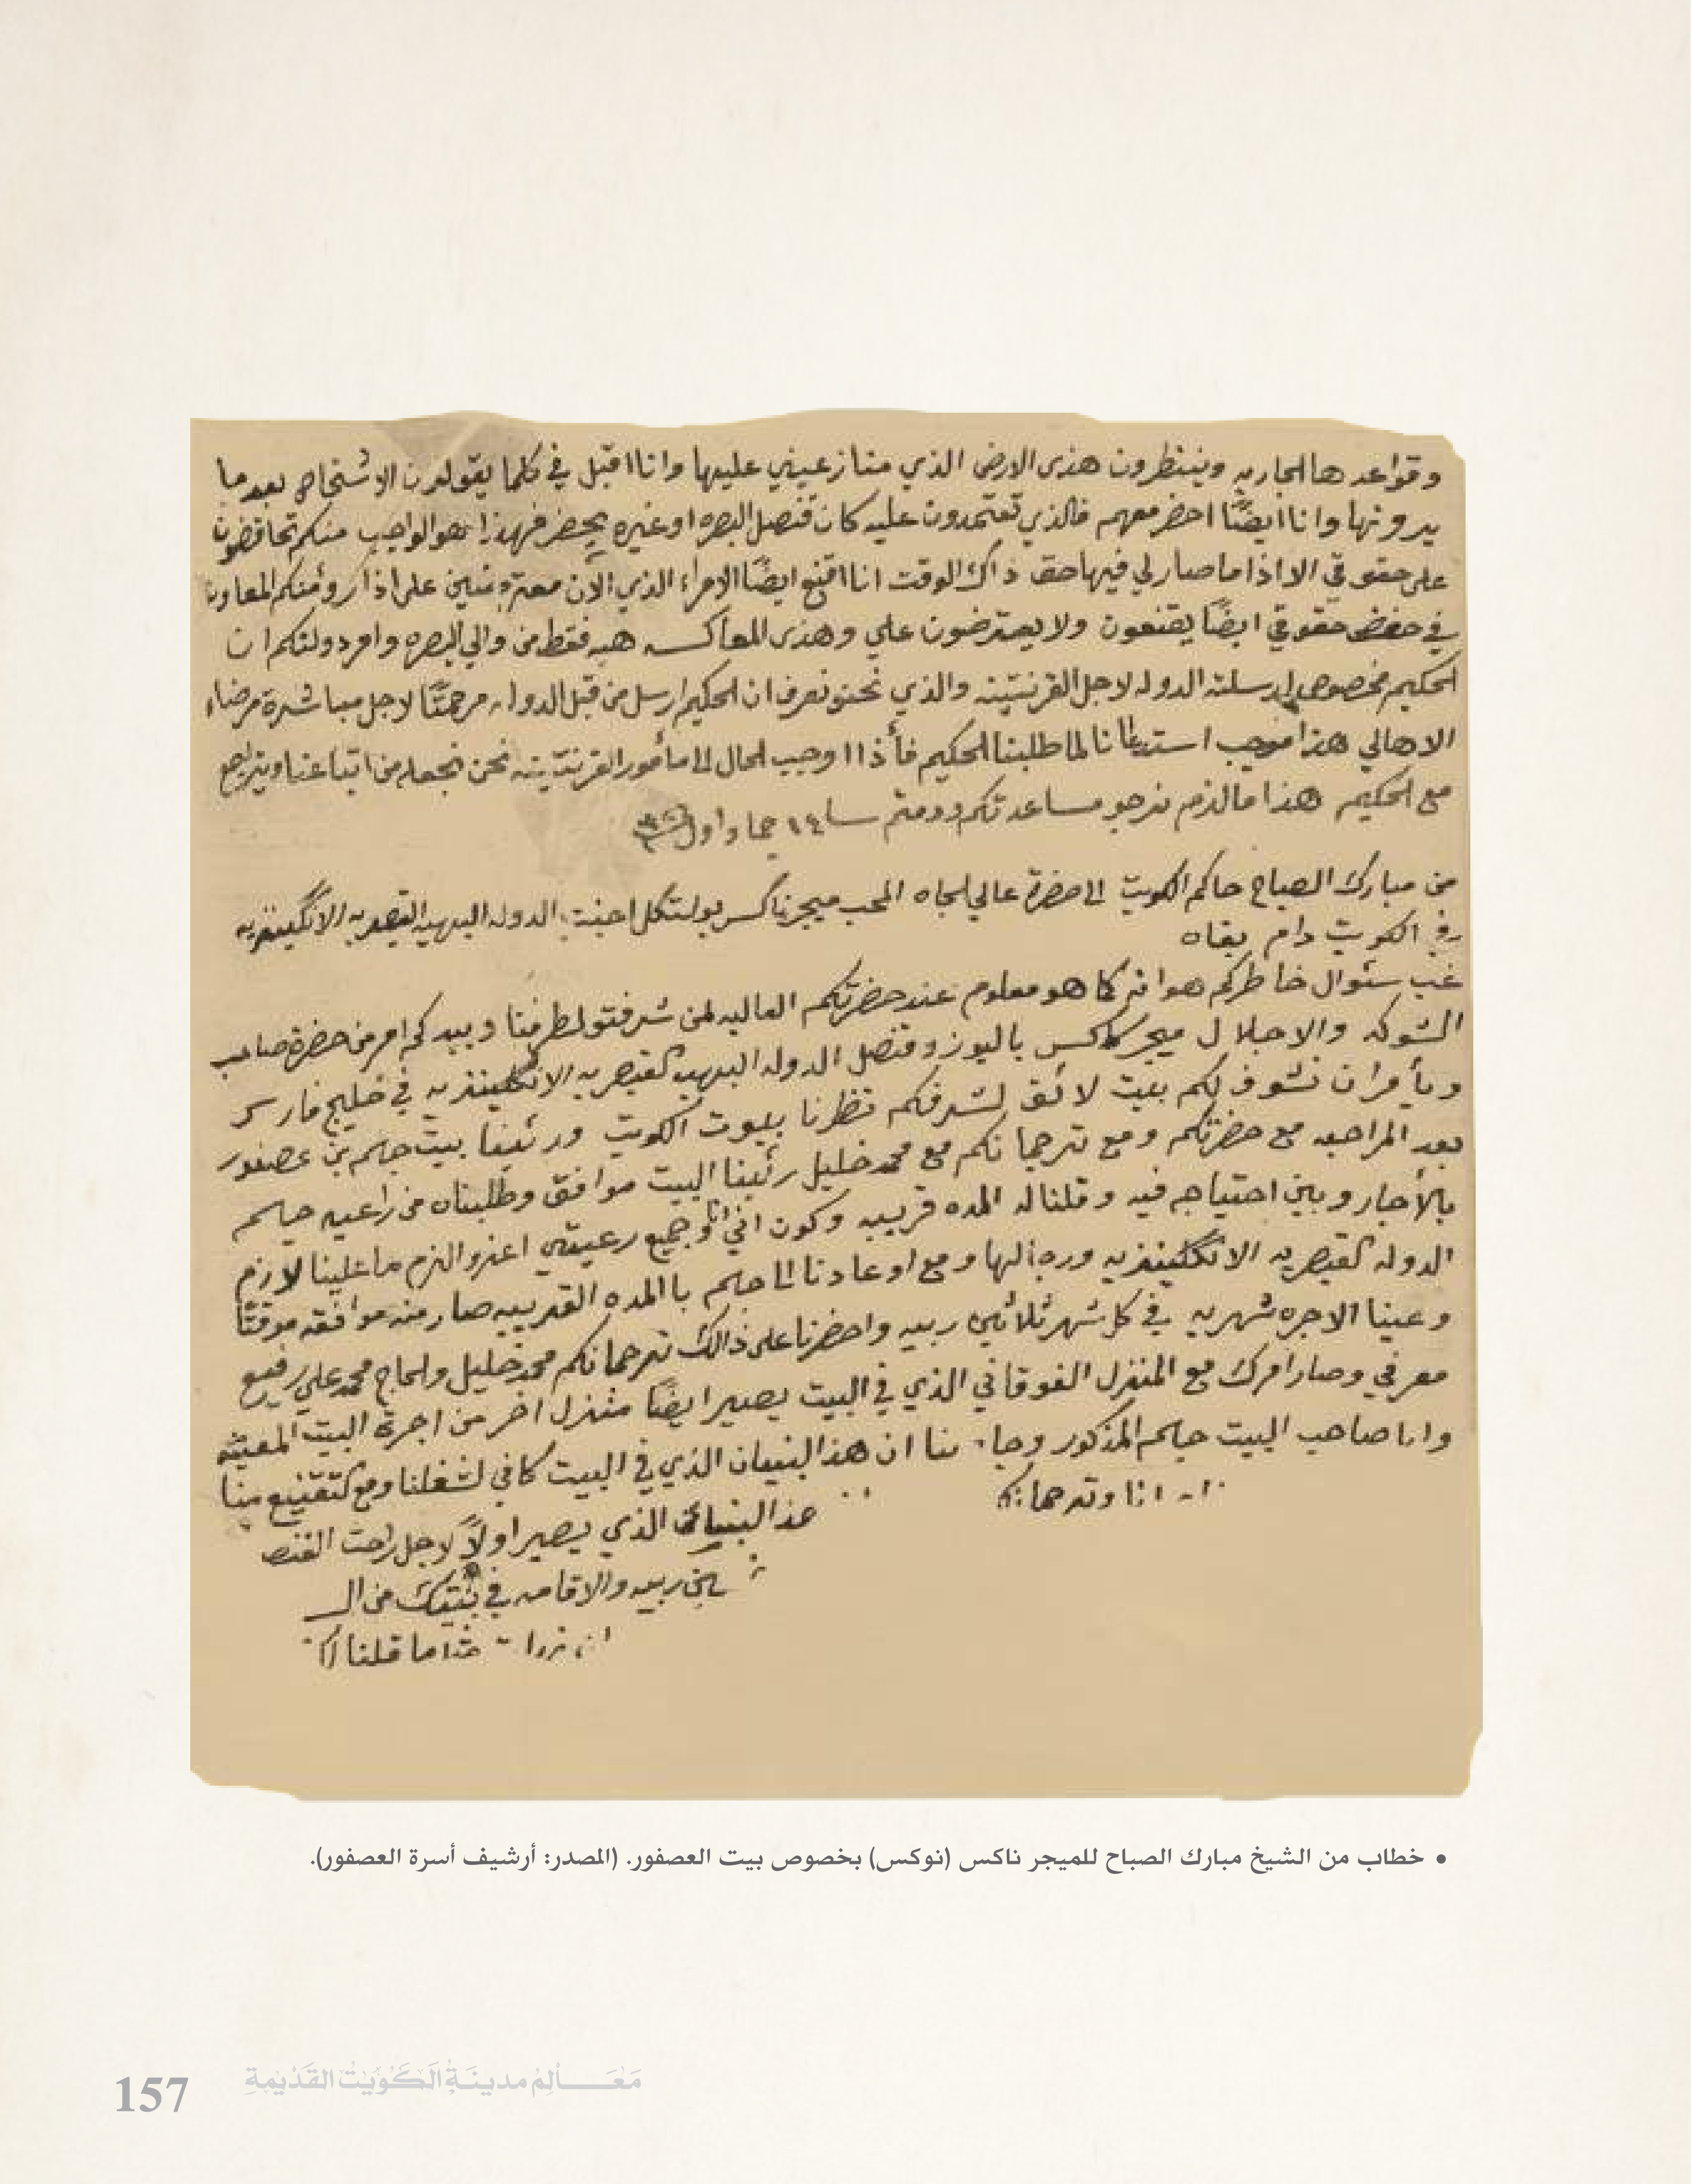 وقواعدها الجاريه وينتظرون هذى الارض الذي متنازعيني عليها وانا اقبل في كلما يقولون الاشخاص بعدما
يرونها وانا ايضًا احضر معهم فالذي تعتمدون عليه كان قنصل البصره او غيره يحضر فهذا هو الواجب منكم تحافضون
على حقوقي الا اذا ما صار لي فيها حق ذاك الوقت انا اقنع ايضًا الامراء الذي الآن معترضين على اذا رؤ منكم المعاونه
في حفض حقوقي ايضًا يقنعون ولا يعترضون علي وهذى المعاكسه هيه فقط من والي البصره وافرد ولتكم ان
الحكيم مخصوص ارسلته الدوله لاجل القرنتينه والذي نحنو نعرف ان الحكيم ارسل من قبل الدوله مرحمتًا لاجل مباشرة مرضاء
الاهالي هذا موجب استدعانا لما طلبنا الحكيم فأذا اوجب الحال الى مأمور القرنتينه نحن نجعله من اتباعنا ويتراجع
مع الحكيم هذا ما لزم نرجو مساعدتكم ودومتم ١٤ جماد اول
من مبارك الصباح حاكم الكويت الى حضرة عالي الجاه المحب ميجر ناكس بولتكل اجنت الدوله البهيه القيصريه الانگليزيه
في الكويت دام بقاه
غب سئوال خاطركم هو انه كما هو معلوم عند حضرتكم العاليه لمن شرفتو لطرفنا وبيدكم امر من حضرة صاحب
الشوكه والاجلال ميجر كاكس باليوز وقنصل الدوله البهيه القيصريه الانگليزيه في خليج فارس
ويأمر ان نشوف لكم بيت لائق لشرفكم نظرنا بيوت الكويت ورئينا بيت جاسم بن عصفور
بعد المراجعه مع حضرتكم ومع ترجمانكم مع محمد خليل رئينا البيت موافق وطلبناه من راعيه جاسم
بالأجار وبين احتياجه فيه وقلنا له المده قريبه وكون اني وجميع رعيتي اعز والزم ما علينا لازم
الدوله القيصريه الانگليزيه ورجالها ومع اوعادنا الى جاسم باالمده القريبه صار منه موافقه موقتًا
وعينا الاجره شهريه في كل شهر ثلاثين ربيه واحضرنا على ذالك ترجمانكم محمد خليل ولحاج محمد علي رفيع
معرفي وصار امرك مع المنزل الفوقاني الذي في البيت يصير ايضًا منزل اخر من اجرة البيت المعينه
وانا صاحب البيت جاسم المذكور وجاء بنا ان هذا البنيان الذي في البيت كافي لشغلنا ومع التقنيع منا
انا وترجمانكم هذا البنيان الذي يصير اولاً لاجل راحت
ربيه والاقامه في بيتك من
ما قلنا
• خطاب من الشيخ مبارك الصباح للميجر ناكس (نوكس) بخصوص بيت العصفور. (المصدر: أرشيف أسرة العصفور).
157 مَعَالِمُ مدينَةِ الكُوَيْت القَدِيْمَةِ